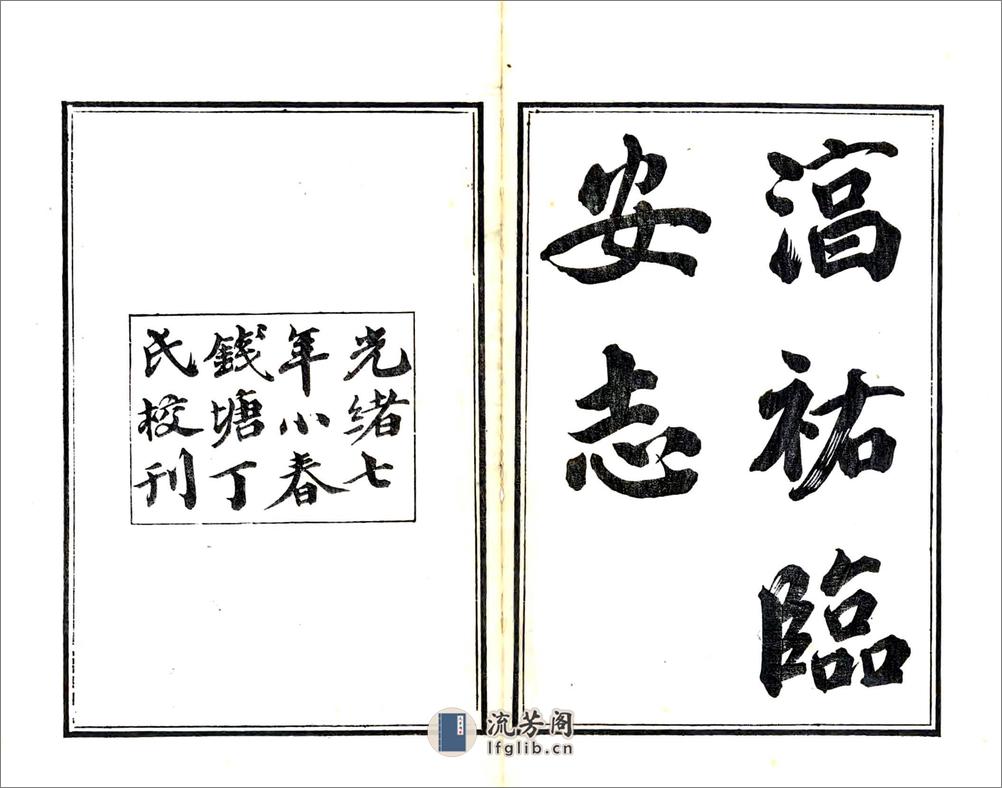 湻祐臨
安志
光緒七
年小春
錢塘丁
氏校刊
流芳阁
lfglib.cn